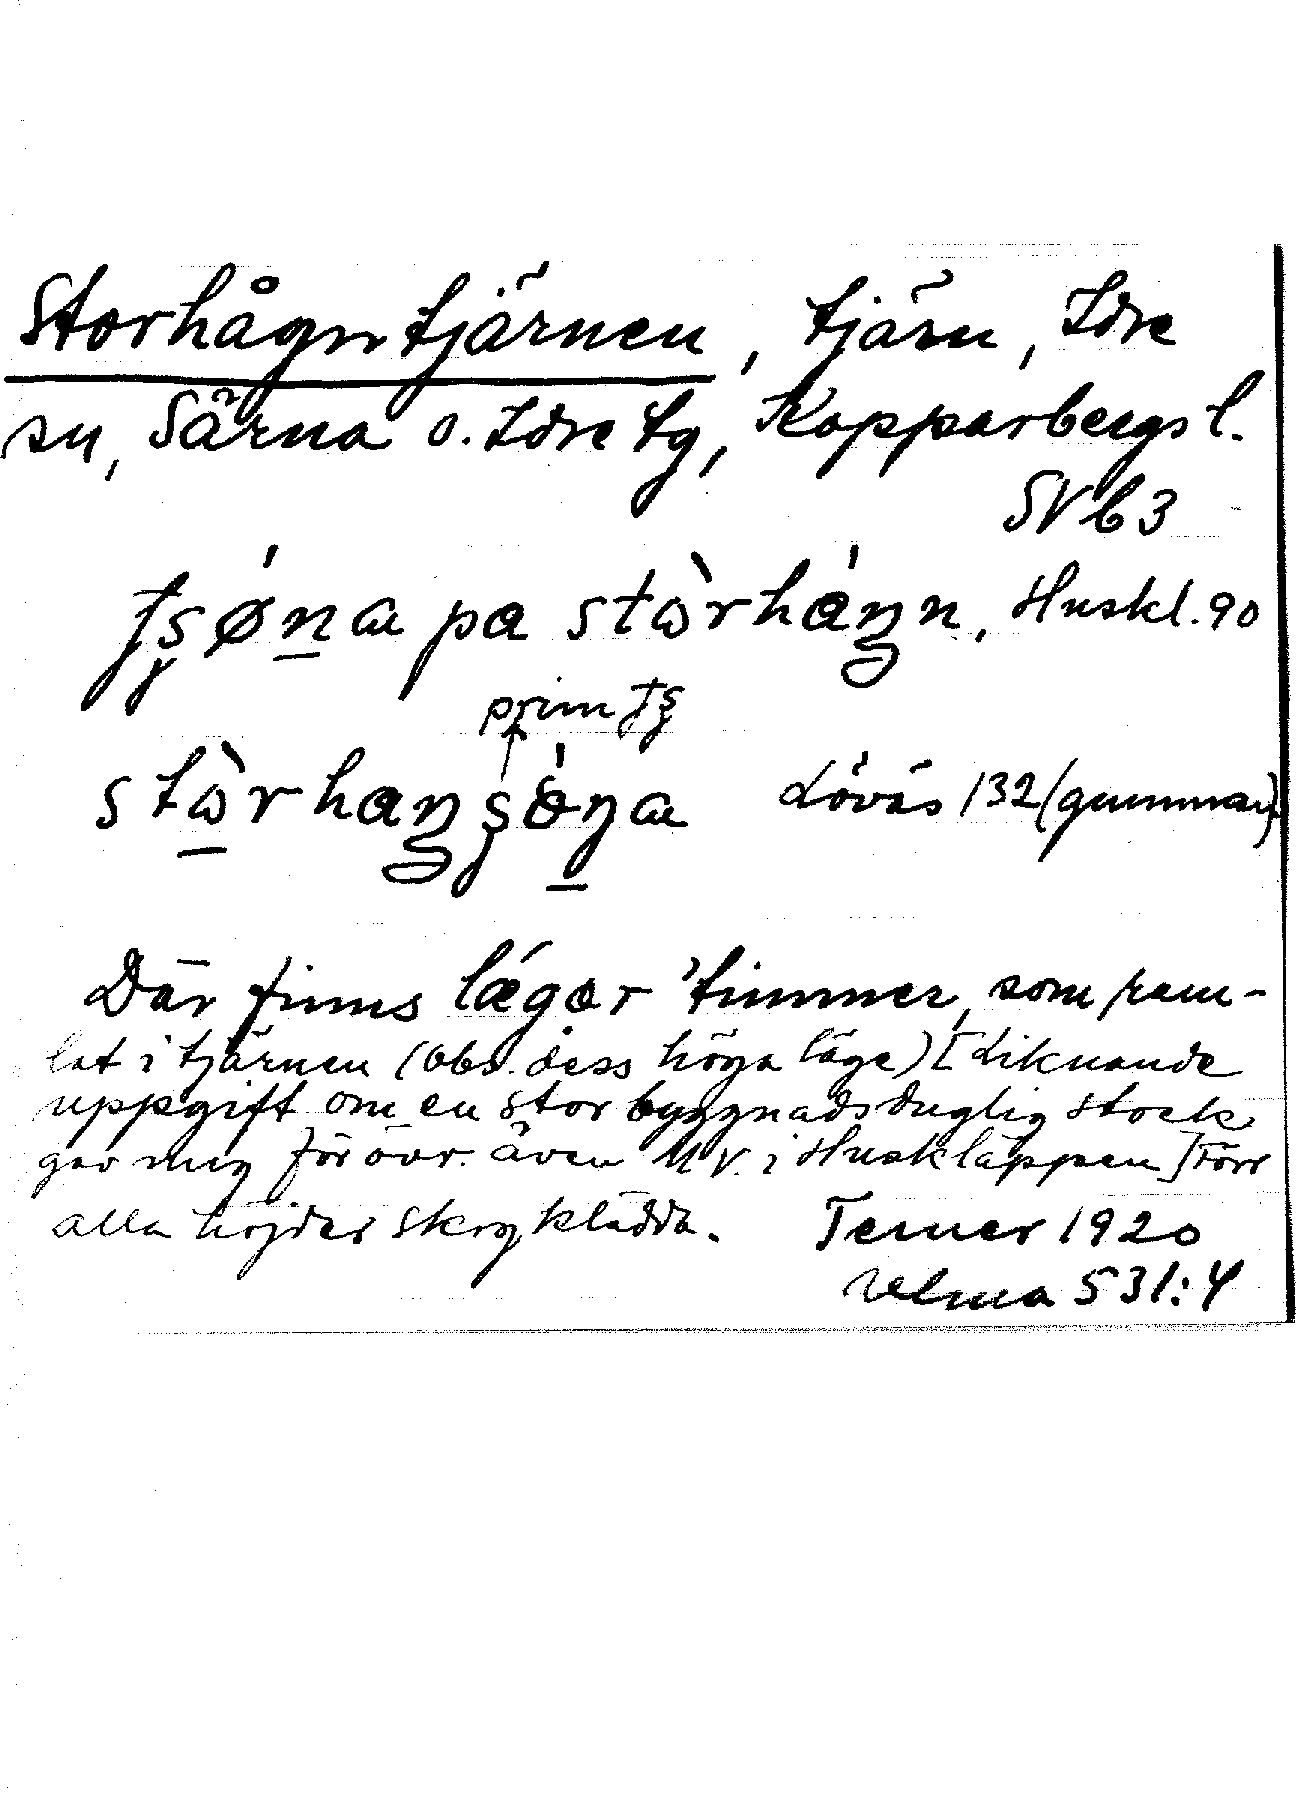 Storhågntjärnen, tjärn, Idre
sn, Särna o. Idre tg, Kopparbergs l.
SV b 3
pa stòrháŋn, Huskl. 90
prim
Lövås 132 (gumman)
Där finns lǽgər 'timmer, som ram-
lat i tjärnen (obs. dess höga läge) [Liknande
uppgift om en stor byggnadsduglig stock
gav mig för övr. även M V. i Huskläppen] Förr
alla höjder skogklädda. Terner 1920
Velma 531:4